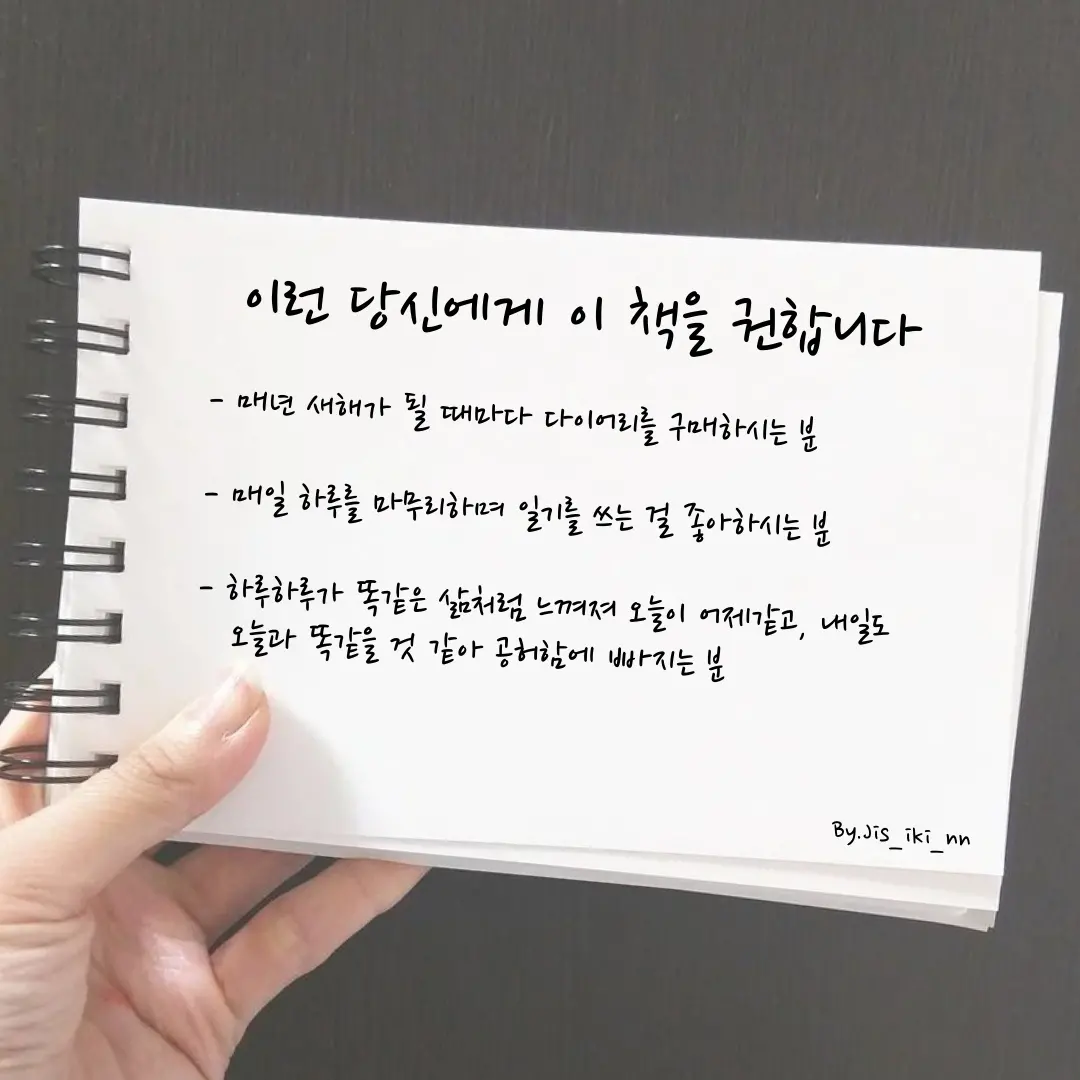 이런 당신에게 이 책을 권합니다
- 매년 새해가 될 때마다 다이어리를 구매하시는 분
- 매일 하루를 마무리하며 일기를 쓰는 걸 좋아하시는 분
- 하루하루가 똑같은 삶처럼 느껴져 오늘이 어제같고, 내일도
오늘과 똑같을 것 같아 공허함에 빠지는 분
By.Jis_iki_nn